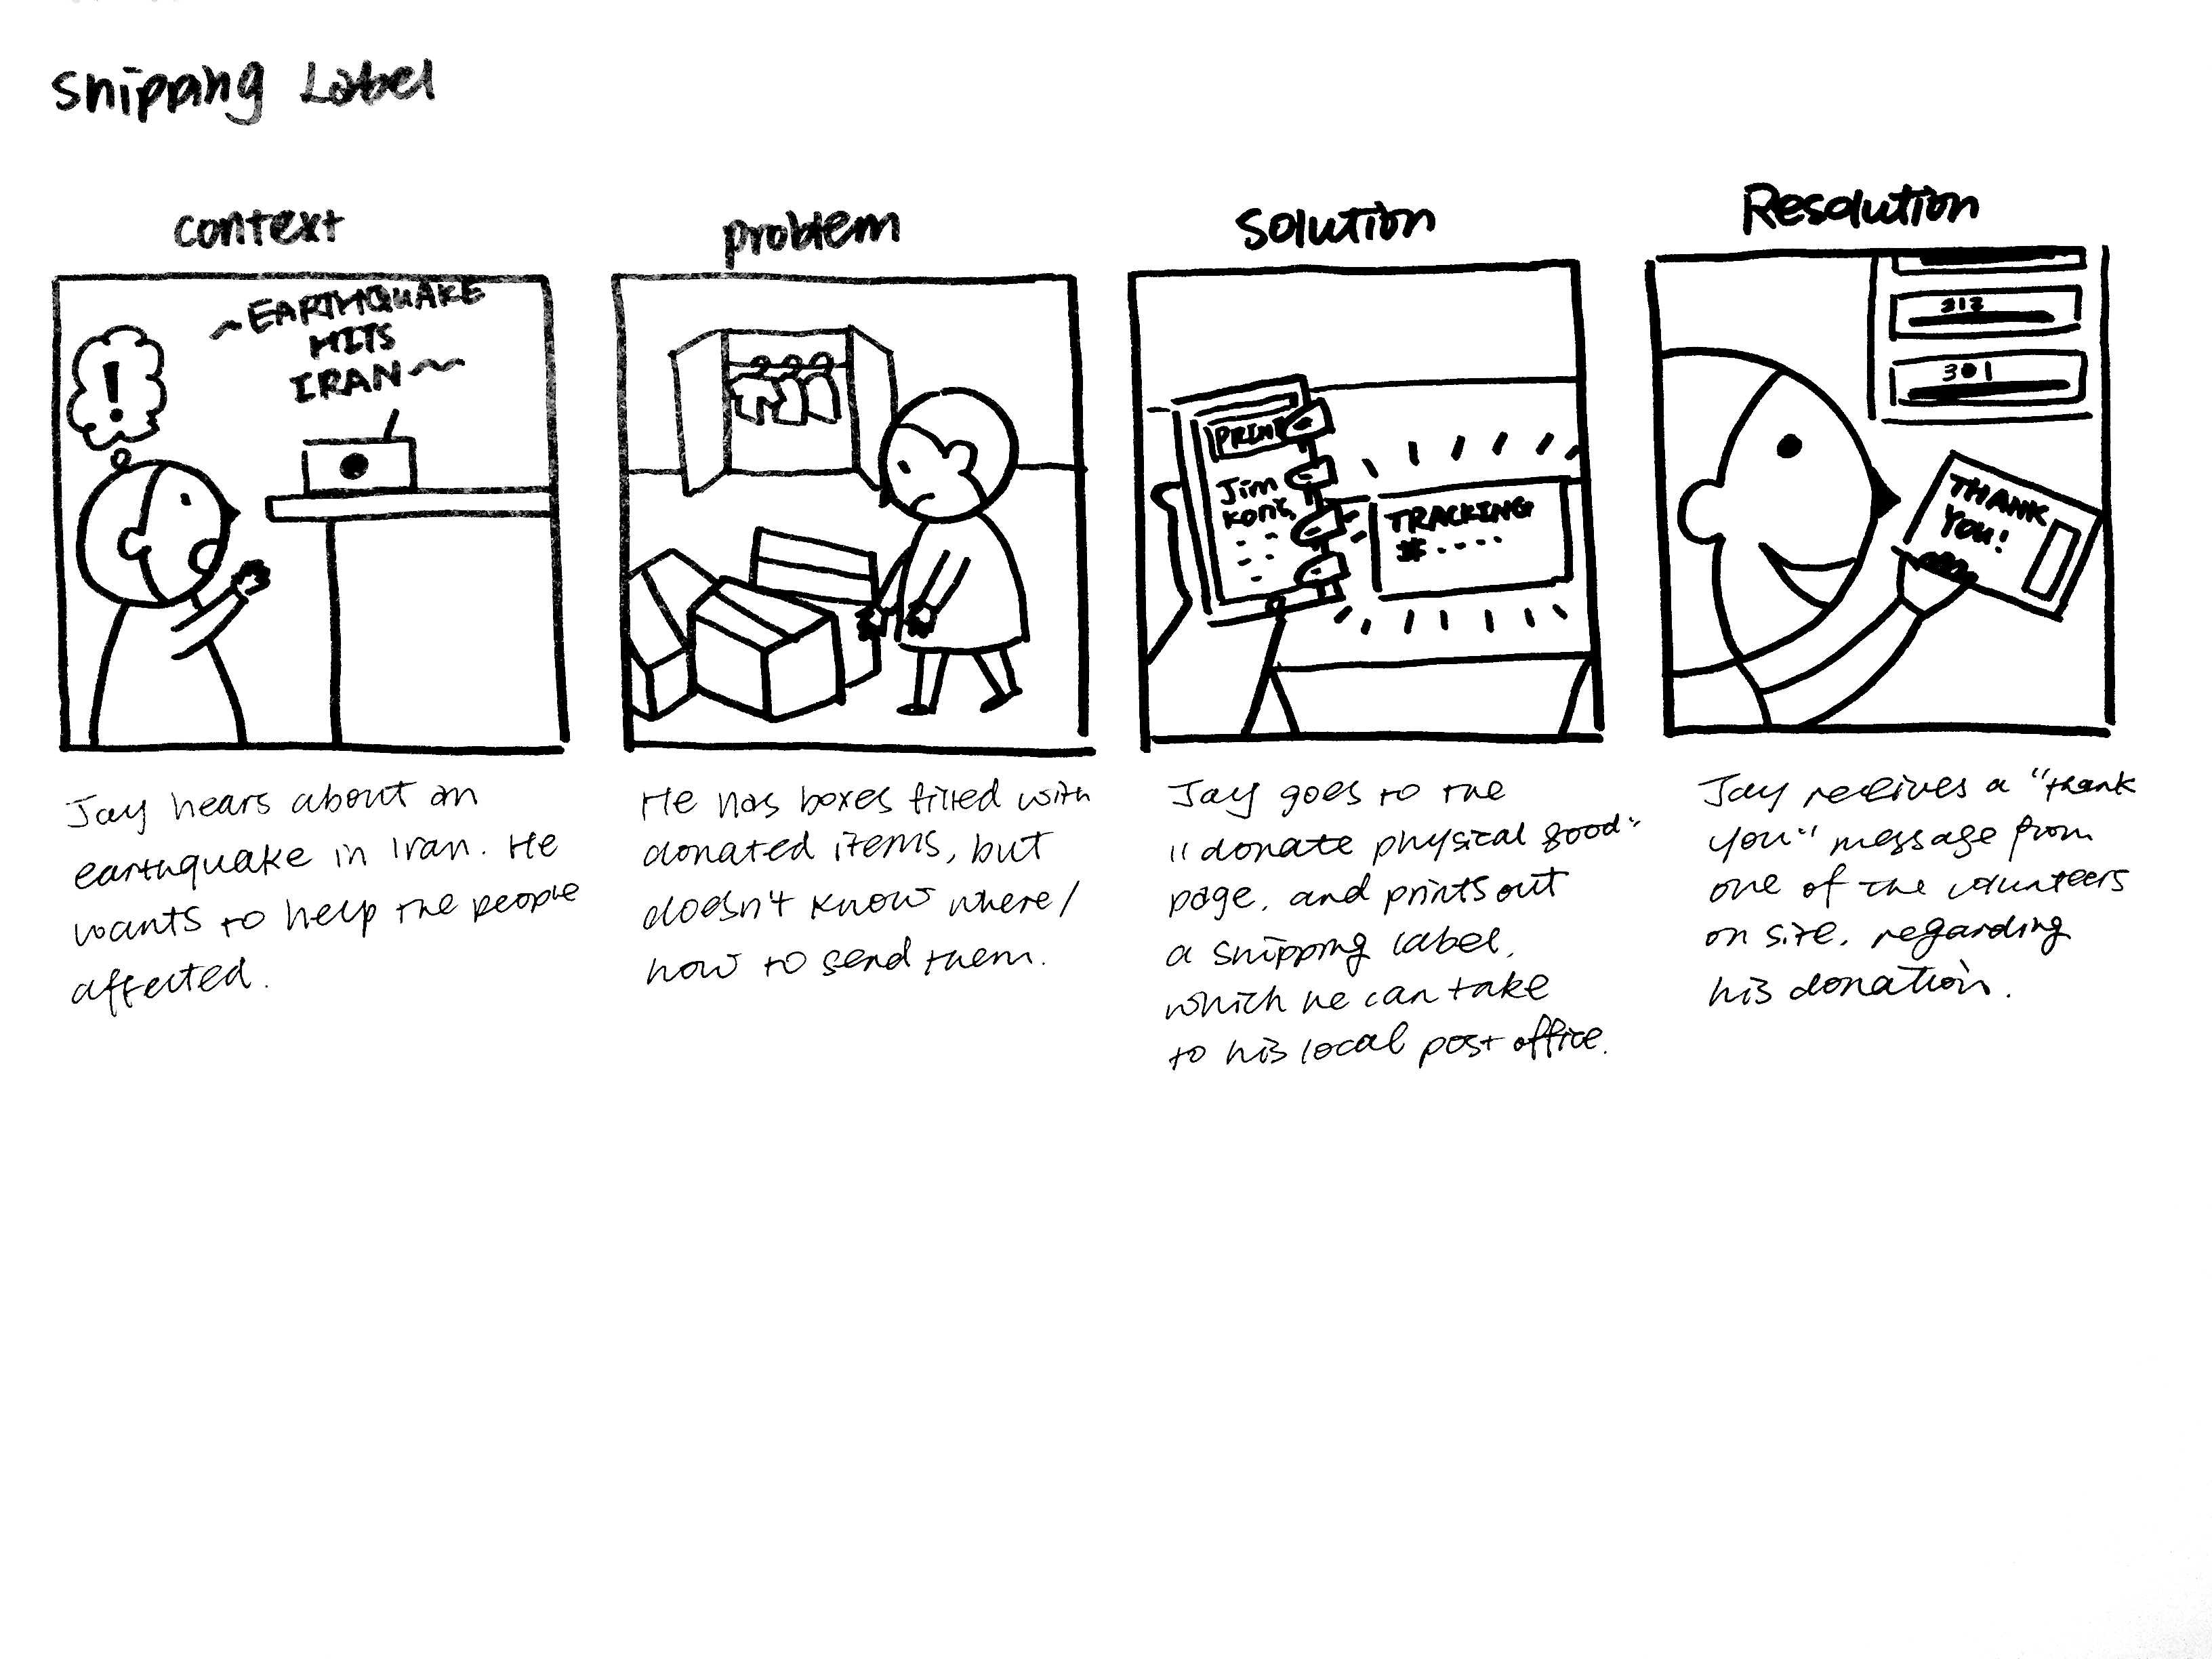 Shipping Label
context
~EARTHQUAKE
HITS
IRAN~
!
Jay hears about an
earthquake in Iran. He
wants to help the people
affected.
problem
He has boxes filled with
donated items, but
doesn't know where/
how to send them.
Solution
PRINT
Jim
TRACKING
#----
Jay goes to the
"donate physical good"
page, and prints out
a shipping label,
which he can take
to his local post office.
Resolution
212
301
THANK
YOU!
Jay receives a "thank
you" message from
one of the volunteers
on site, regarding
his donation.